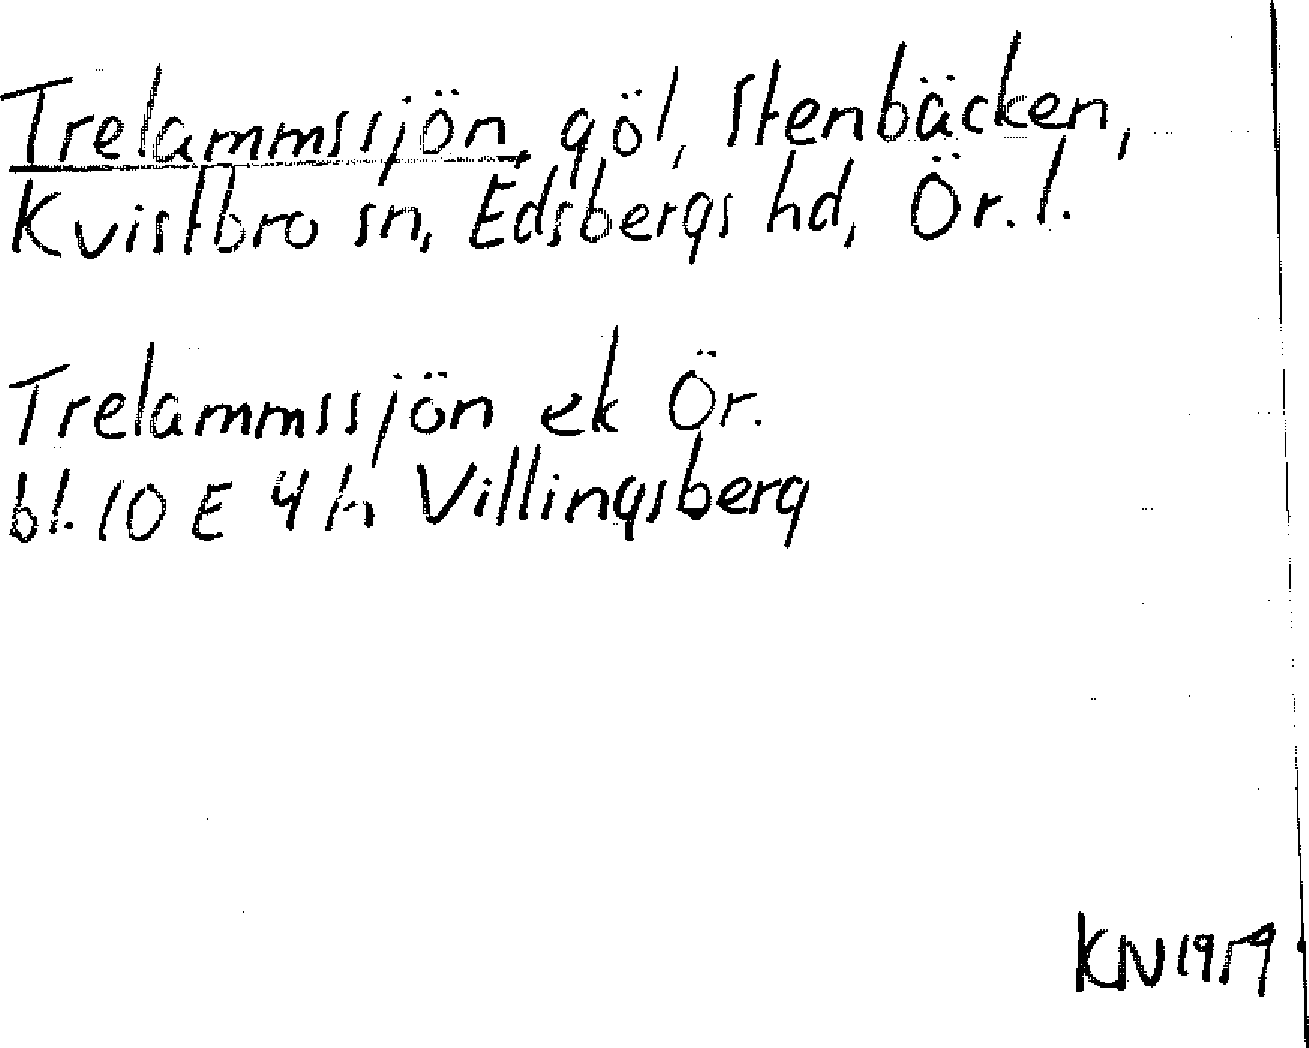 Trelammssjön, göl, Stenbäcken,
Kvistbro sn, Edsbergs hd, Ör. l.
Trelammssjön ek Ör.
bl. 10 E 4 h Villingsberg
KN 1959